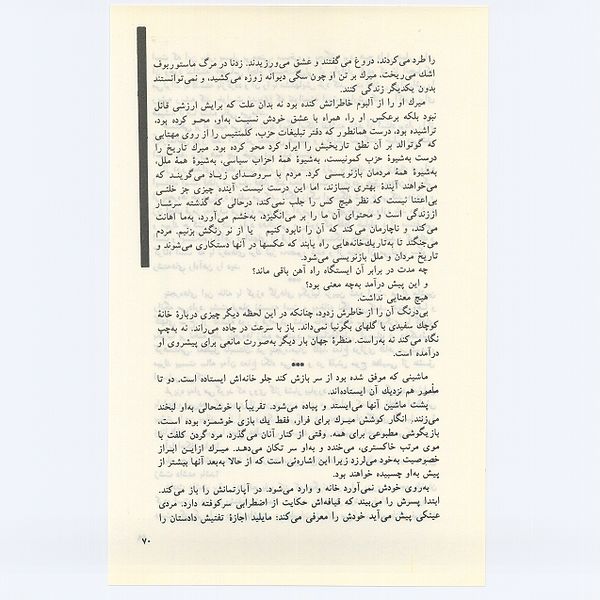 را طرد می‌کردند، دروغ می‌گفتند و عشق می‌ورزیدند. زدنا در مرگ ماستوربوف
اشك می‌ریخت، میرك بر تن او چون سگی دیوانه زوزه می‌کشید، و نمی‌توانستند
بدون یکدیگر زندگی کنند.
میرك او را از آلبوم خاطراتش کنده بود نه بدان علت که برایش ارزشی قائل
نبود بلکه برعکس. او را، همراه با عشق خودش نسبت به‌او، محو کرده بود،
تراشیده بود، درست همانطور که دفتر تبلیغات حزب، کلمنتیس را از روی مهتابی
که گوتوالد بر آن نطق تاریخیش را ایراد کرد محو کرده بود. میرك تاریخ را
درست به‌شیوهٔ حزب کمونیست، به‌شیوهٔ همهٔ احزاب سیاسی، به‌شیوهٔ همهٔ ملل،
به‌شیوهٔ همهٔ مردمان بازنویسی کرد. مردم با سروصدای زیاد می‌گویند که
می‌خواهند آیندهٔ بهتری بسازند، اما این درست نیست. آینده چیزی جز خلئی
بی‌اعتنا نیست که نظر هیچ کس را جلب نمی‌کند، درحالی که گذشته سرشار
اززندگی است و محتوای آن ما را بر می‌انگیزد، به‌خشم می‌آورد، به‌ما اهانت
می‌کند، و ناچارمان می‌کند که آن را نابود کنیم یا از نو رنگش بزنیم. مردم
می‌جنگند تا به‌تاریك‌خانه‌هایی راه یابند که عکسها در آنها دستکاری می‌شوند و
تاریخ مردان و ملل بازنویسی می‌شود.
چه مدت در برابر آن ایستگاه راه آهن باقی ماند؟
و این پیش درآمد به‌چه معنی بود؟
هیچ معنایی نداشت.
بی‌درنگ آن را از خاطرش زدود، چنانکه در این لحظه دیگر چیزی دربارهٔ خانهٔ
کوچك سفیدی با گلهای بگونیا نمی‌داند. باز با سرعت در جاده می‌راند. نه به‌چپ
نگاه می‌کند نه به‌راست. منظرهٔ جهان بار دیگر به‌صورت مانعی برای پیشروی او
درآمده است.
***
ماشینی که موفق شده بود از سر بازش کند جلو خانه‌اش ایستاده است. دو تا
مأمور هم نزدیك آن ایستاده‌اند.
پشت ماشین آنها می‌ایستد و پیاده می‌شود. تقریباً با خوشحالی به‌او لبخند
می‌زنند. انگار کوشش میرك برای فرار، فقط یك بازی خوشمزه بوده است،
بازیگوشی مطبوعی برای همه. وقتی از کنار آنان می‌گذرد، مرد گردن کلفت با
موی مرتب خاکستری، می‌خندد و به‌او سر تکان می‌دهد. میرك ازاین ابراز
خصوصیت به‌خود می‌لرزد زیرا این اشاره‌ئی است که از حالا به‌بعد آنها بیشتر از
پیش به‌او چسبیده خواهند بود.
به‌روی خودش نمی‌آورد خانه و وارد می‌شود. در آپارتمانش را باز می‌کند.
ابتدا پسرش را می‌بیند که قیافه‌اش حکایت از اضطرابی سرکوفته دارد. مردی
عینکی پیش می‌آید خودش را معرفی می‌کند: مایلید اجازهٔ تفتیش دادستان را
۷۰